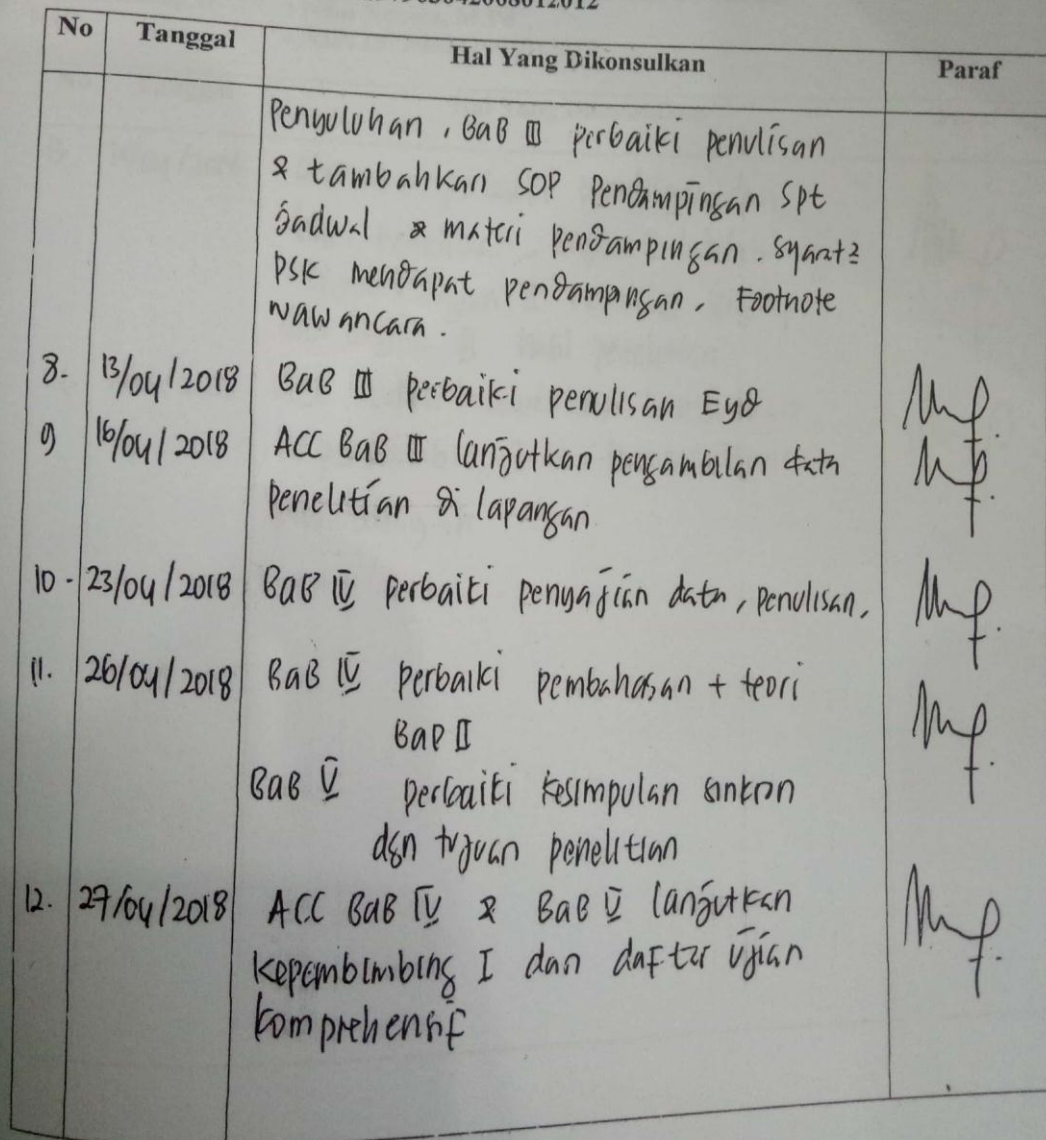 No Tanggal Hal Yang Dikonsulkan Paraf
Penyuluhan, BaB III perbaiki penulisan
& tambahkan SOP Pendampingan Spt
Jadwal & materi pendampingan. Syarat2
PSK mendapat pendampingan, Footnote
wawancara.
8. 13/04/2018 BaB III perbaiki penulisan Eyd
9 16/04/2018 ACC BaB III lanjutkan pengambilan data
penelitian di lapangan
10. 23/04/2018 BaB IV perbaiki penyajian data, penulisan,
11. 26/04/2018 BaB IV perbaiki pembahasan + teori
BaB II
BaB V perbaiki kesimpulan sinkron
dgn tujuan penelitian
12. 27/04/2018 ACC BaB IV & BaB V lanjutkan
kepembimbing I dan daftar ujian
komprehensif